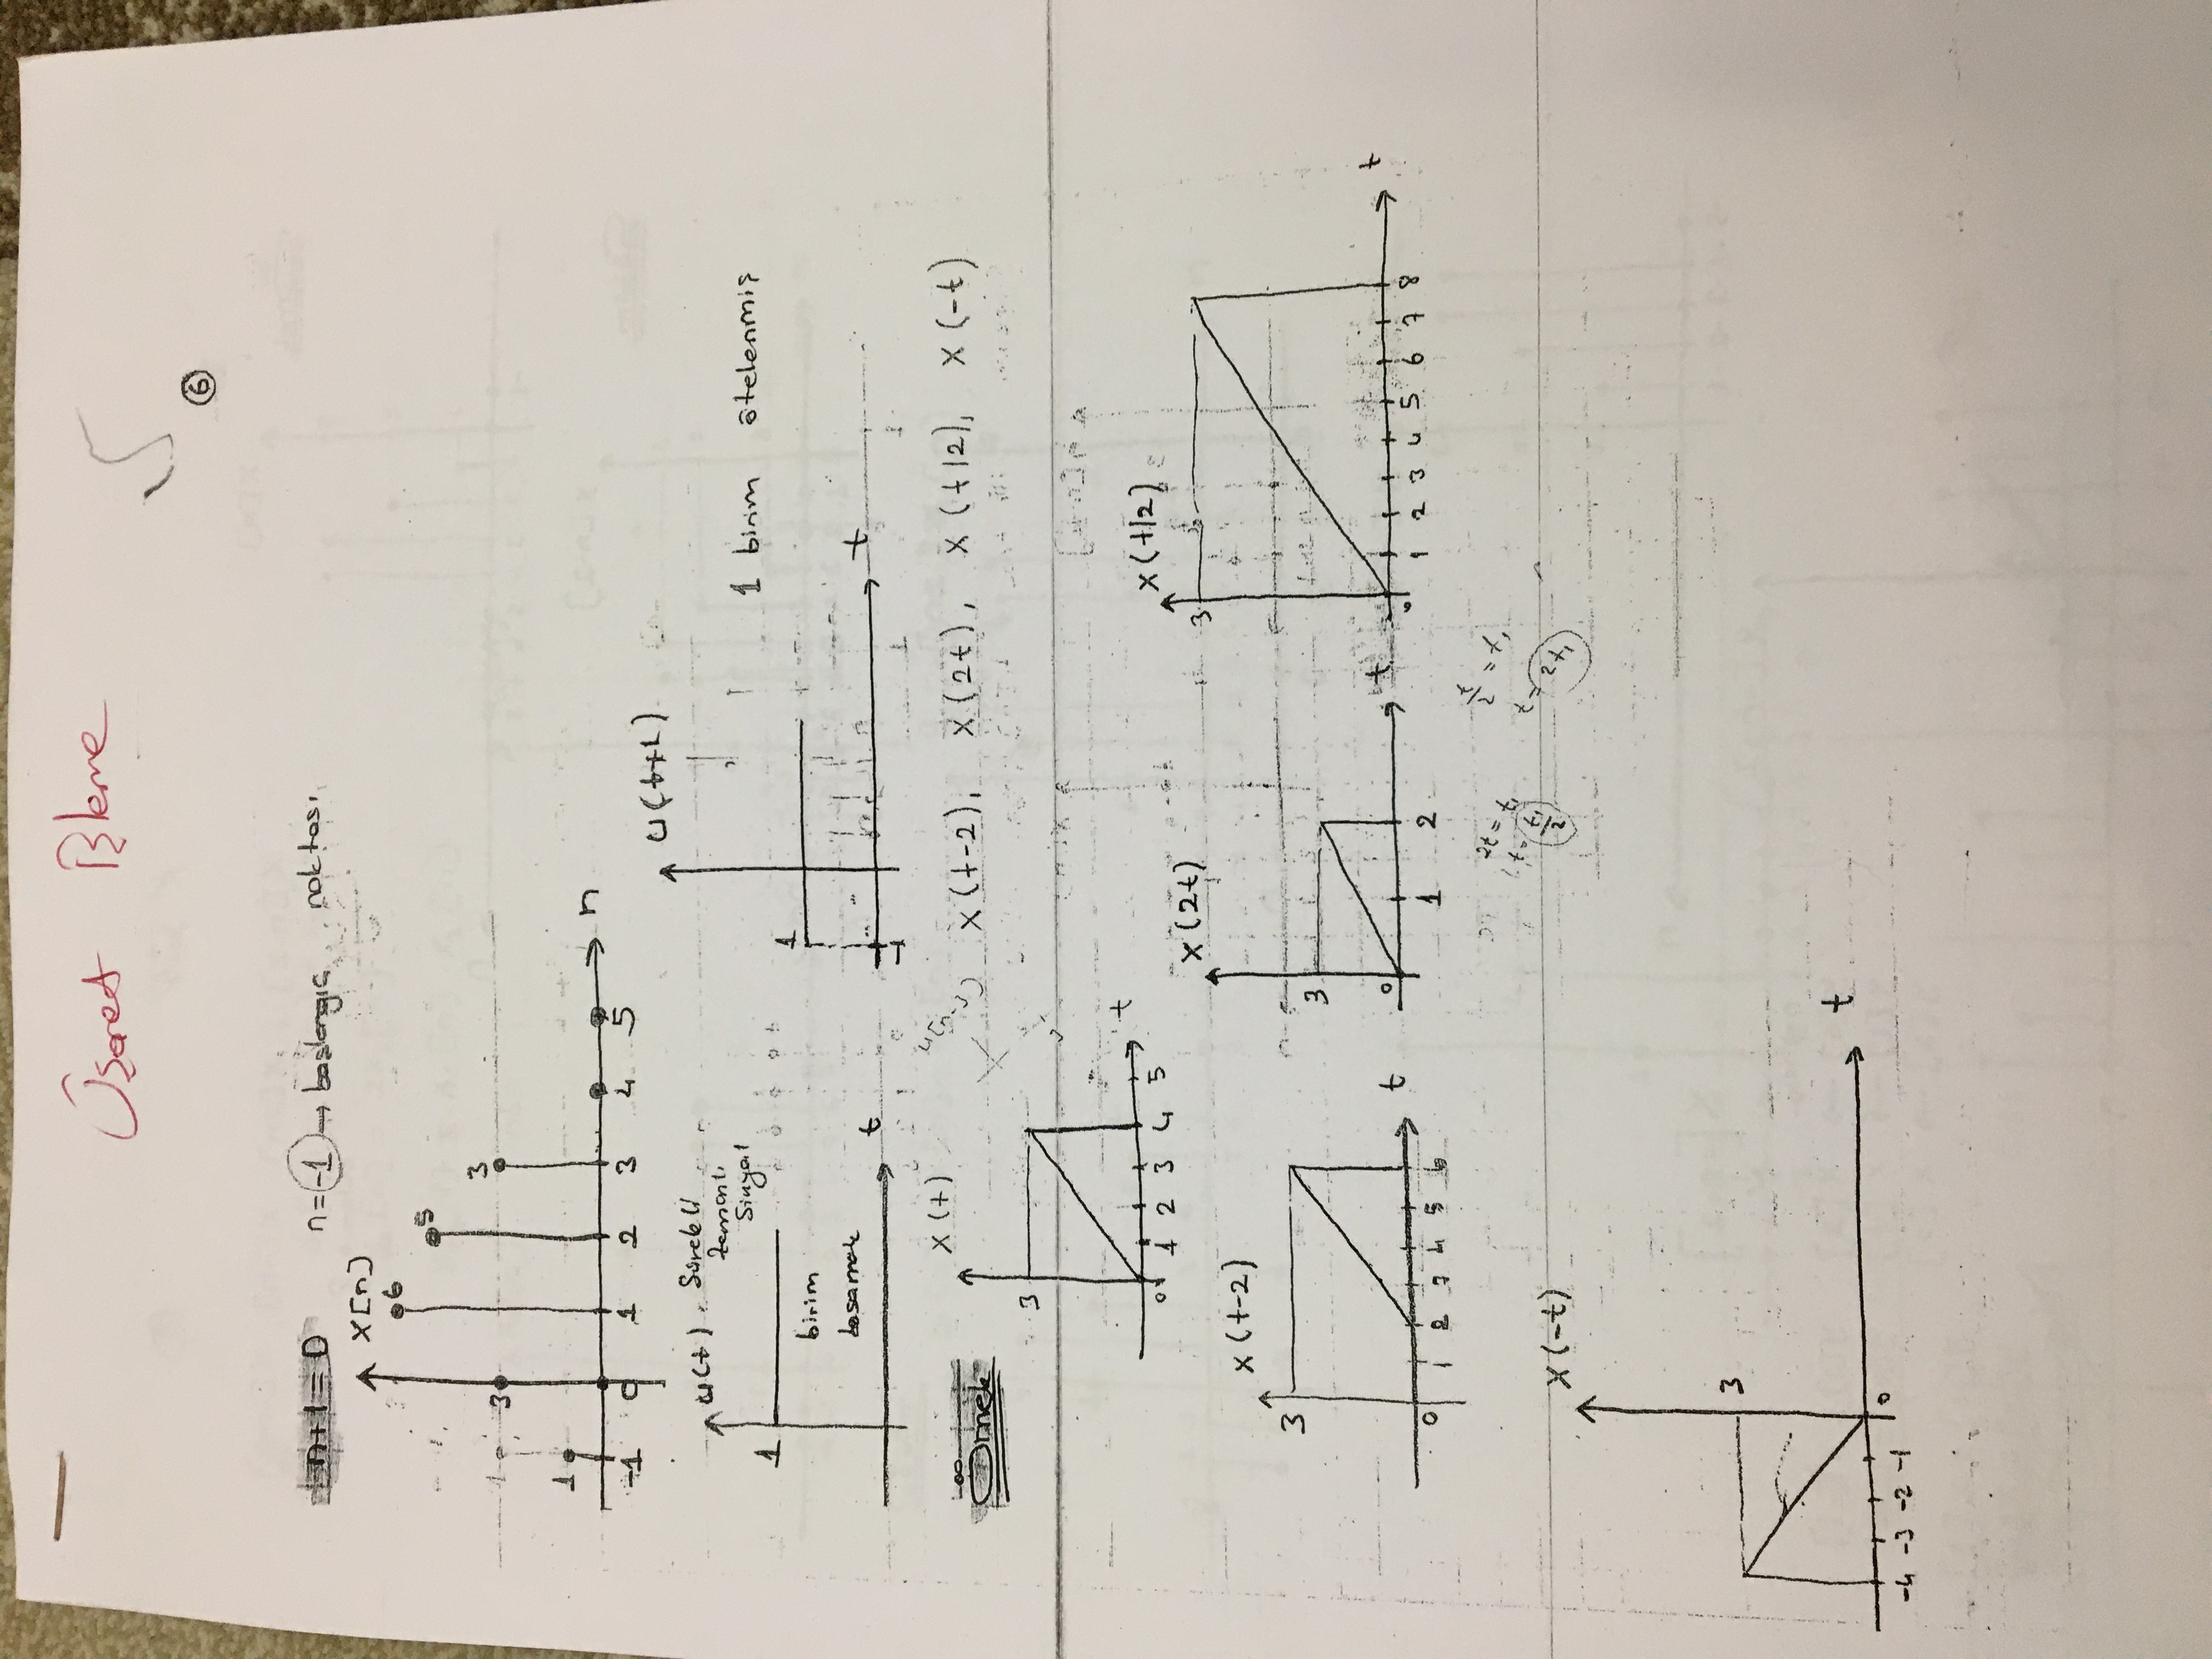 İşaret İşleme
6
n+1=0 n=-1 → başlangıç noktası
x[n]
6
5
3
3
1
-1 0 1 2 3 4 5 n
u(t) Sürekli
zamanlı
Sinyal
1
birim
basamak
t
u(t+1)
1
1 birim ötelenmiş
-1 t
Örnek
x(t)
x(t-2), x(2t), x(t/2), x(-t)
3
0 1 2 3 4 5 t
x(t-2)
3
0 1 2 3 4 5 6 t
x(2t)
3
0 1 2 t
x(t/2)
3
0 1 2 3 4 5 6 7 8 t
2t = t₁
t = t₁/2
t/2 = t₁
t = 2t₁
x(-t)
3
-4 -3 -2 -1 0 t